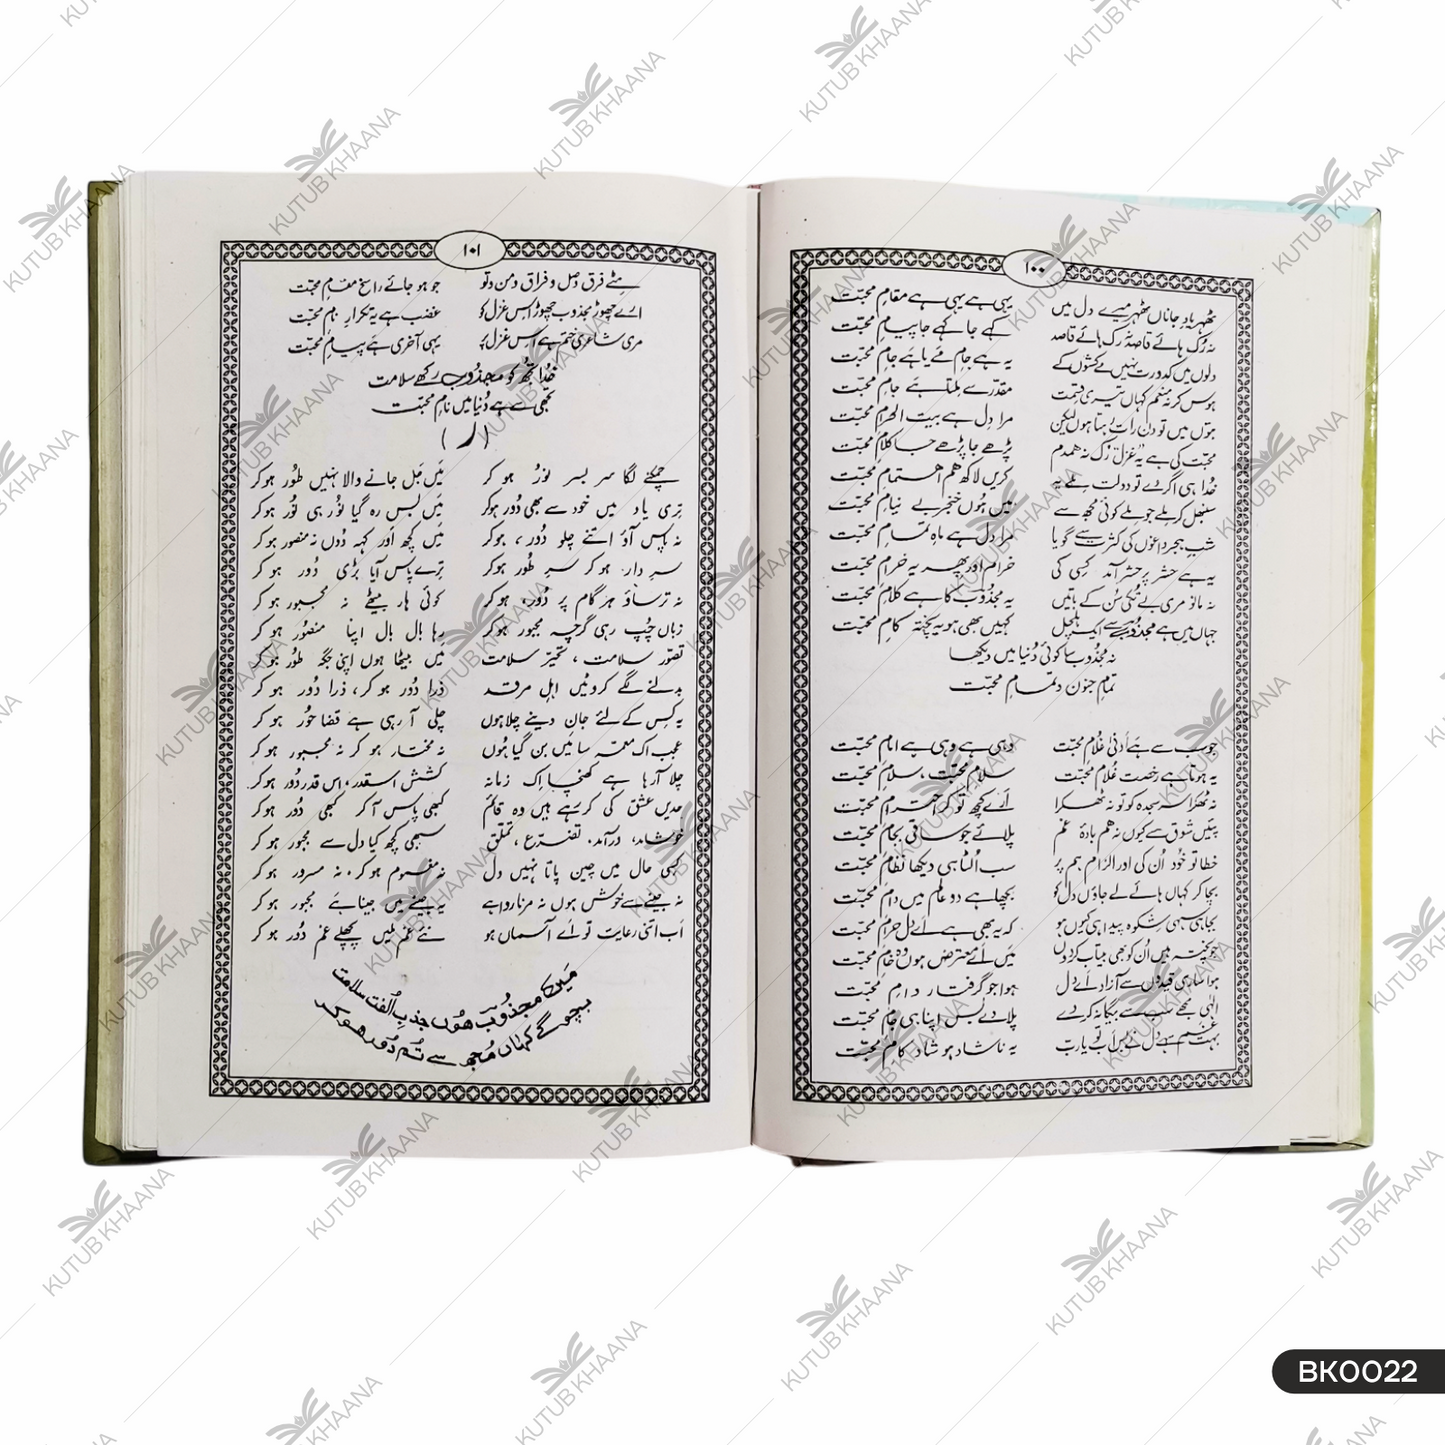 ۱۰۰
ٹھہر یادِ جاناں ٹھہر میرے دل میں یہی ہے یہی ہے مقامِ محبّت
نہ رُک ہائے قاصد نہ رُک ہائے قاصد کہے جا کہے جا پیامِ محبّت
دلوں میں کدورت نہیں مے کشوں کے یہ ہے جامِ مے یا ہے جامِ محبّت
ہوس کر نہ منعم کہاں تیری قسمت مقدّر سے ملتا ہے جامِ محبّت
بتوں میں تو دن رات رہتا ہوں لیکن مرا دل ہے بیت الحرامِ محبّت
محبّت کی ہے یہ غزل رُک نہ ہمدم پڑھے جا پڑھے جا کلامِ محبّت
خُدا ہی اگر دے تو دولت ملے یہ کریں لاکھ ہم اہتمامِ محبّت
سنبھل کر ملے جو ملے کوئی مجھ سے میں ہُوں خنجرِ بے نیامِ محبّت
شبِ ہجر داغوں کی کثرت سے گویا مرا دل ہے ماہِ تمامِ محبّت
یہ ہے حشر پر حشر آمد کِسی کی خرام اور پھر یہ خرامِ محبّت
نہ مانو مری بے تُکی سُن کے باتیں یہ مجذُوب کا ہے کلامِ محبّت
جہاں میں ہے مجذوب سے ایک ہلچل کہیں بھی ہو یہ پختہ کامِ محبّت
نہ مجذُوب سا کوئی دُنیا میں دیکھا
تمامِ جنون و تمامِ محبّت
جو سب سے ہے اَدنیٰ غُلامِ محبّت وہی ہے وہی ہے امامِ محبّت
یہ ہوتا ہے رخصت غُلامِ محبّت سلامِ محبّت، سلامِ محبّت
نہ ٹھکرا سرِ سجدہ کو تو نہ ٹھکرا اَرے کچھ تو کر احترامِ محبّت
پئیں شوق سے کیوں نہ ہم بادۂ غم پلائے جو ساقی بجامِ محبّت
خطا تو خُود اُن کی اور الزام ہم پر سب اُلٹا ہی دیکھا نظامِ محبّت
بچا کر کہاں ہائے لے جاؤں دل کو بچھا ہے دو عالم میں دامِ محبّت
بجا ہی سہی شکوہ پیدا ہی کیوں ہو کہ یہ بھی ہے اَے دل حرامِ محبّت
جو پختہ ہیں اُن کو بھی بیتاب کر دوں میں اَے معترض ہوں وہ خامِ محبّت
ہوا ساری قیدوں سے آزاد اَے دل ہوا جو گرفتارِ دامِ محبّت
الٰہی مجھے سب سے بیگانہ کر دے پلا دے بس اپنا ہی جامِ محبّت
بہت غم سہے دل نے بس اب تو یارب یہ ناشاد ہو شادکامِ محبّت
۱۰۱
مٹے فرق وصل و فراق و من و تو جو ہو جائے راسخ مقامِ محبّت
ارے چھوڑ مجذوب چھوڑ اس غزل کو غضب ہے یہ تکرارِ نامِ محبّت
مری شاعری ختم ہے اس غزل پر یہی آخری ہے پیامِ محبّت
خُدا تجھ کو مجذُوب رکھے سلامت
تجھی سے ہے دُنیا میں نامِ محبّت
(ر)
چمکنے لگا سر بسر نُور ہو کر مَیں جل جانے والا نہیں طُور ہو کر
تری یاد میں خود سے بھی دُور ہو کر مَیں بس رہ گیا نُور ہی نُور ہو کر
نہ پاس آؤ اتنے چلو دُور، ہو کر مَیں کچھ اَور کہہ دُوں نہ منصور ہو کر
سرِ دار ہو کر سرِ طُور ہو کر ترے پاس آیا بڑی دُور ہو کر
نہ ترساؤ ہر گام پر دُور، ہو کر کوئی ہار بیٹھے نہ مجبور ہو کر
زباں چُپ رہی گرچہ مجبور ہو کر رہا بال بال اپنا منصُور ہو کر
تصوّر سلامت، تحیّر سلامت میں بیٹھا ہوں اپنی جگہ طُور ہو کر
بدلنے لگے کروٹیں اہلِ مرقد ذرا دُور ہو کر، ذرا دُور ہو کر
یہ کِس کے لئے جان دینے چلا ہوں چلی آ رہی ہے قضا حُور ہو کر
عجب اک معمّہ سا میں بن گیا ہُوں نہ مختار ہو کر نہ مجبور ہو کر
چلا آ رہا ہے کھنچا اِک زمانہ کشش اسقدر، اس قدر دُور ہو کر
حدیں عشق کی کر رہے ہیں وہ قائم کبھی پاس آ کر کبھی دُور ہو کر
خوشامد، درآمد، تضرّع، تملّق سبھی کچھ کیا دل سے مجبور ہو کر
کسی حال میں چین پاتا نہیں دل نہ مغموم ہو کر، نہ مسرور ہو کر
نہ جینے سے خوش ہوں نہ مرنا روا ہے یہ جینے میں جینا ہے مجبور ہو کر
اَب اتنی رعایت تو اَے آسماں ہو نئے غم ملیں پچھلے غم دُور ہو کر
مَیں مجذُوب ہُوں جذبِ اُلفت سلامت
بچو گے کہاں مُجھ سے تُم دُور ہو کر
KUTUB KHAANA
BK0022